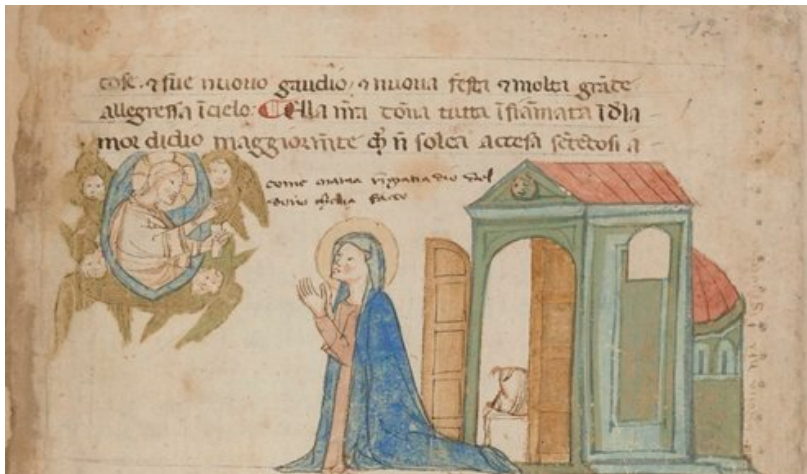 12
tose. ⁊ fue nuouo gaudio, ⁊ nuoua festa ⁊ molta grāde
allegreſſa ī cielo. ¶ Ella nr̄a dōna tutta īfiāmata ī del
mor didio maggiorm̄te ch̄ n̄ solea accesa sētēdosi a
come maria rīgratia dio del
dono facto